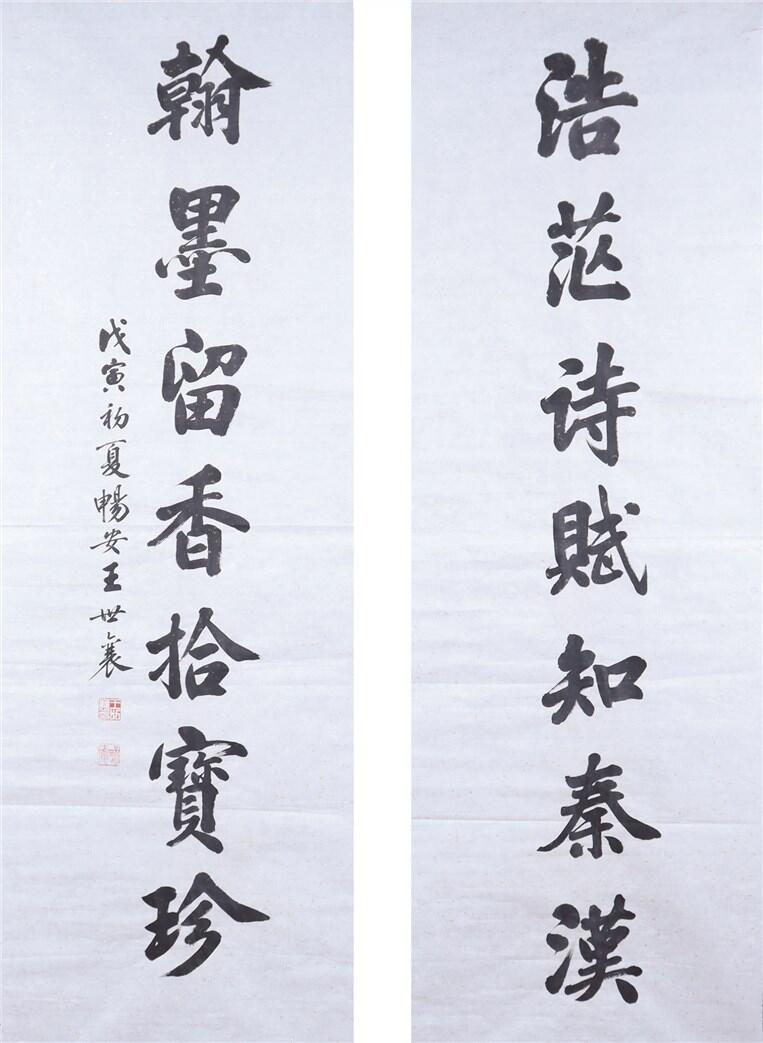 浩茫诗赋知秦漢
翰墨留香拾寶珍
戊寅初夏暢安王世襄